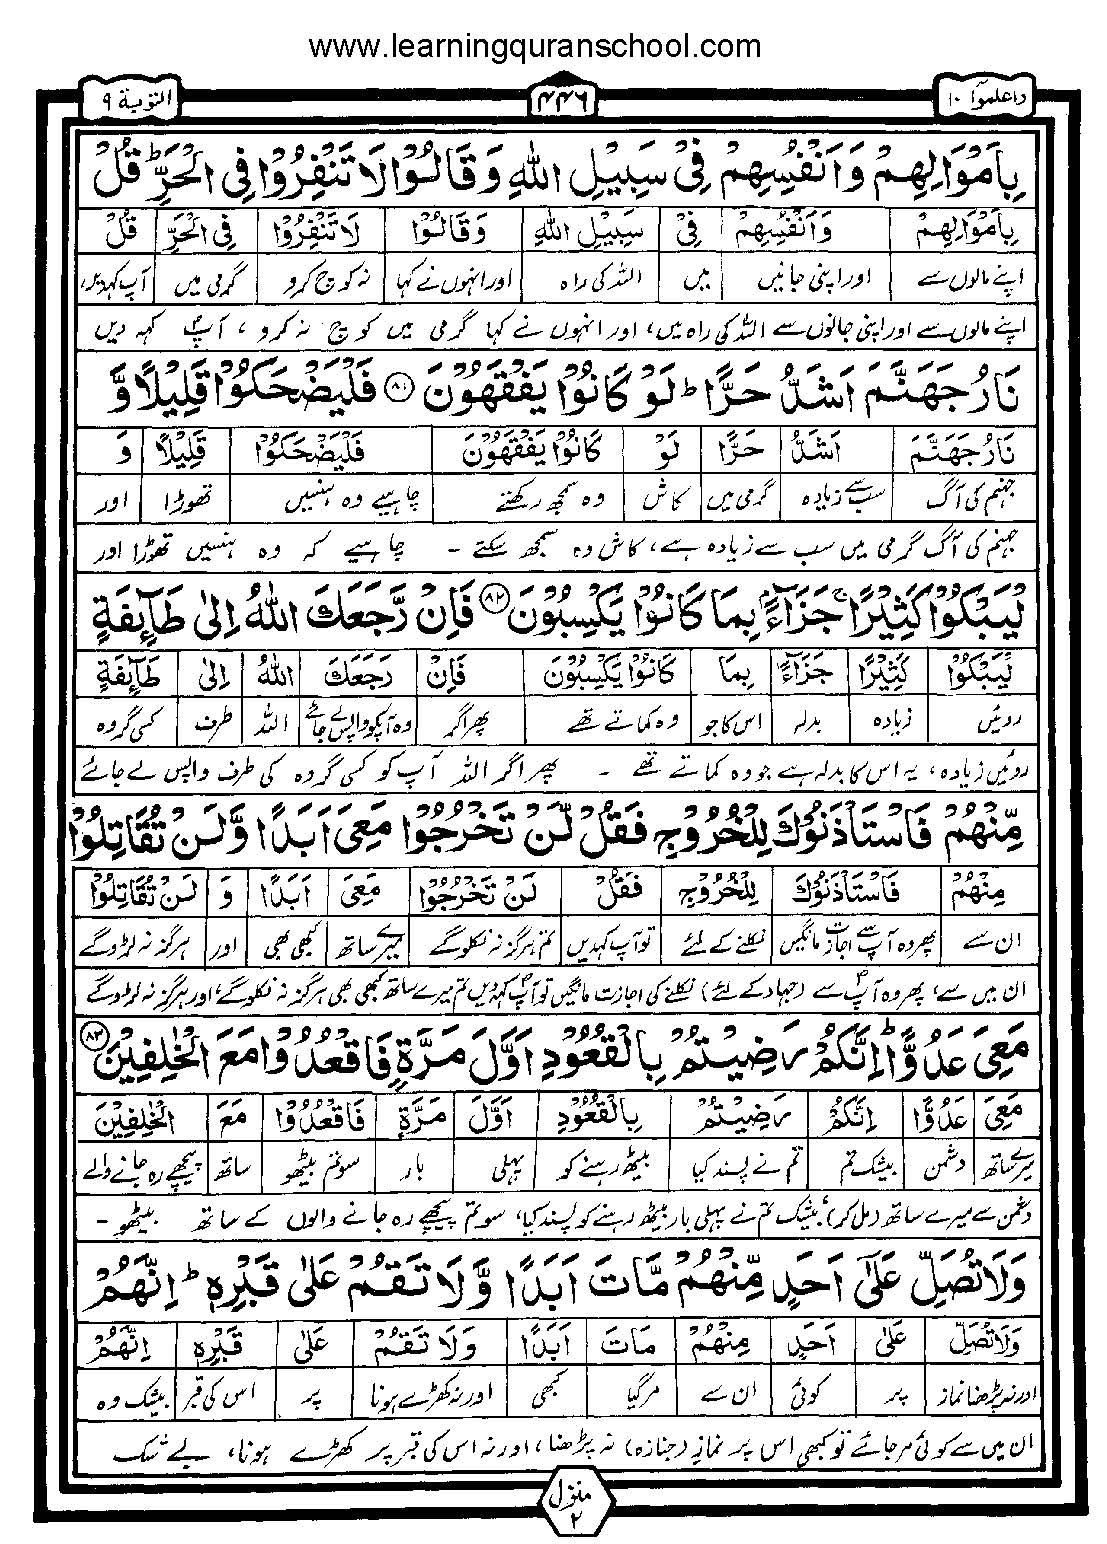 www.learningquranschool.com
واعلموٓا ١٠ ۴۴۶ التوبة ٩
بِاَمْوَالِهِمْ وَاَنْفُسِهِمْ فِيْ سَبِيْلِ اللّٰهِ وَقَالُوْا لَا تَنْفِرُوْا فِى الْحَرِّ ؕ قُلْ
بِاَمْوَالِهِمْ وَاَنْفُسِهِمْ فِيْ سَبِيْلِ اللّٰهِ وَقَالُوْا لَا تَنْفِرُوْا فِى الْحَرِّ قُلْ
اپنے مالوں سے اور اپنی جانیں میں اللہ کی راہ اور انہوں نے کہا نہ کوچ کرو گرمی میں آپ کہدیں
اپنے مالوں سے اور اپنی جانوں سے اللہ کی راہ میں، اور انہوں نے کہا گرمی میں کوچ نہ کرو، آپؐ کہہ دیں
نَارُ جَهَنَّمَ اَشَدُّ حَرًّا ؕ لَوْ كَانُوْا يَفْقَهُوْنَ ﴿٨١﴾ فَلْيَضْحَكُوْا قَلِيْلًا وَّ
نَارُ جَهَنَّمَ اَشَدُّ حَرًّا لَوْ كَانُوْا يَفْقَهُوْنَ فَلْيَضْحَكُوْا قَلِيْلًا وَ
جہنم کی آگ سب سے زیادہ گرمی میں کاش وہ سمجھ رکھتے چاہیے وہ ہنسیں تھوڑا اور
جہنم کی آگ گرمی میں سب سے زیادہ ہے، کاش وہ سمجھ سکتے - چاہیے کہ وہ ہنسیں تھوڑا اور
لْيَبْكُوْا كَثِيْرًا ۚ جَزَآءًۢ بِمَا كَانُوْا يَكْسِبُوْنَ ﴿٨٢﴾ فَاِنْ رَّجَعَكَ اللّٰهُ اِلٰى طَآئِفَةٍ
لْيَبْكُوْا كَثِيْرًا جَزَآءً بِمَا كَانُوْا يَكْسِبُوْنَ فَاِنْ رَجَعَكَ اللّٰهُ اِلٰى طَآئِفَةٍ
روئیں زیادہ بدلہ اس کا جو وہ کماتے تھے پھر اگر وہ آپکو واپس لے جائے اللہ طرف کسی گروہ
روئیں زیادہ، یہ اس کا بدلہ ہے جو وہ کماتے تھے - پھر اگر اللہ آپ کو کسی گروہ کی طرف واپس لے جائے
مِّنْهُمْ فَاسْتَاْذَنُوْكَ لِلْخُرُوْجِ فَقُلْ لَّنْ تَخْرُجُوْا مَعِىَ اَبَدًا وَّلَنْ تُقَاتِلُوْا
مِنْهُمْ فَاسْتَاْذَنُوْكَ لِلْخُرُوْجِ فَقُلْ لَنْ تَخْرُجُوْا مَعِىَ اَبَدًا وَ لَنْ تُقَاتِلُوْا
ان سے پھر وہ آپ سے اجازت مانگیں نکلنے کے لئے تو آپ کہدیں تم ہرگز نہ نکلوگے میرے ساتھ کبھی بھی اور ہرگز نہ لڑوگے
ان میں سے، پھر وہ آپؐ سے (جہاد کے لئے) نکلنے کی اجازت مانگیں تو آپؐ کہدیں تم میرے ساتھ کبھی بھی ہرگز نہ نکلوگے، اور ہرگز نہ لڑوگے
مَعِىَ عَدُوًّا ؕ اِنَّكُمْ رَضِيْتُمْ بِالْقُعُوْدِ اَوَّلَ مَرَّةٍ فَاقْعُدُوْا مَعَ الْخٰلِفِيْنَ ﴿٨٣﴾
مَعِىَ عَدُوًّا اِنَّكُمْ رَضِيْتُمْ بِالْقُعُوْدِ اَوَّلَ مَرَّةٍ فَاقْعُدُوْا مَعَ الْخٰلِفِيْنَ
میرے ساتھ دشمن بیشک تم تم نے پسند کیا بیٹھ رہنے کو پہلی بار سو تم بیٹھو ساتھ پیچھے رہ جانے والے
دشمن سے میرے ساتھ (مل کر)، بیشک تم نے پہلی بار بیٹھ رہنے کو پسند کیا، سو تم پیچھے رہ جانے والوں کے ساتھ بیٹھو -
وَلَا تُصَلِّ عَلٰٓى اَحَدٍ مِّنْهُمْ مَّاتَ اَبَدًا وَّلَا تَقُمْ عَلٰى قَبْرِهٖ ؕ اِنَّهُمْ
وَلَا تُصَلِّ عَلٰى اَحَدٍ مِنْهُمْ مَاتَ اَبَدًا وَلَا تَقُمْ عَلٰى قَبْرِهٖ اِنَّهُمْ
اور نہ پڑھنا نماز پر کوئی ان سے مرگیا کبھی اور نہ کھڑے ہونا پر اس کی قبر بیشک وہ
ان میں سے کوئی مر جائے تو کبھی اس پر نماز (جنازہ) نہ پڑھنا، اور نہ اس کی قبر پر کھڑے ہونا، بے شک
منزل ٢